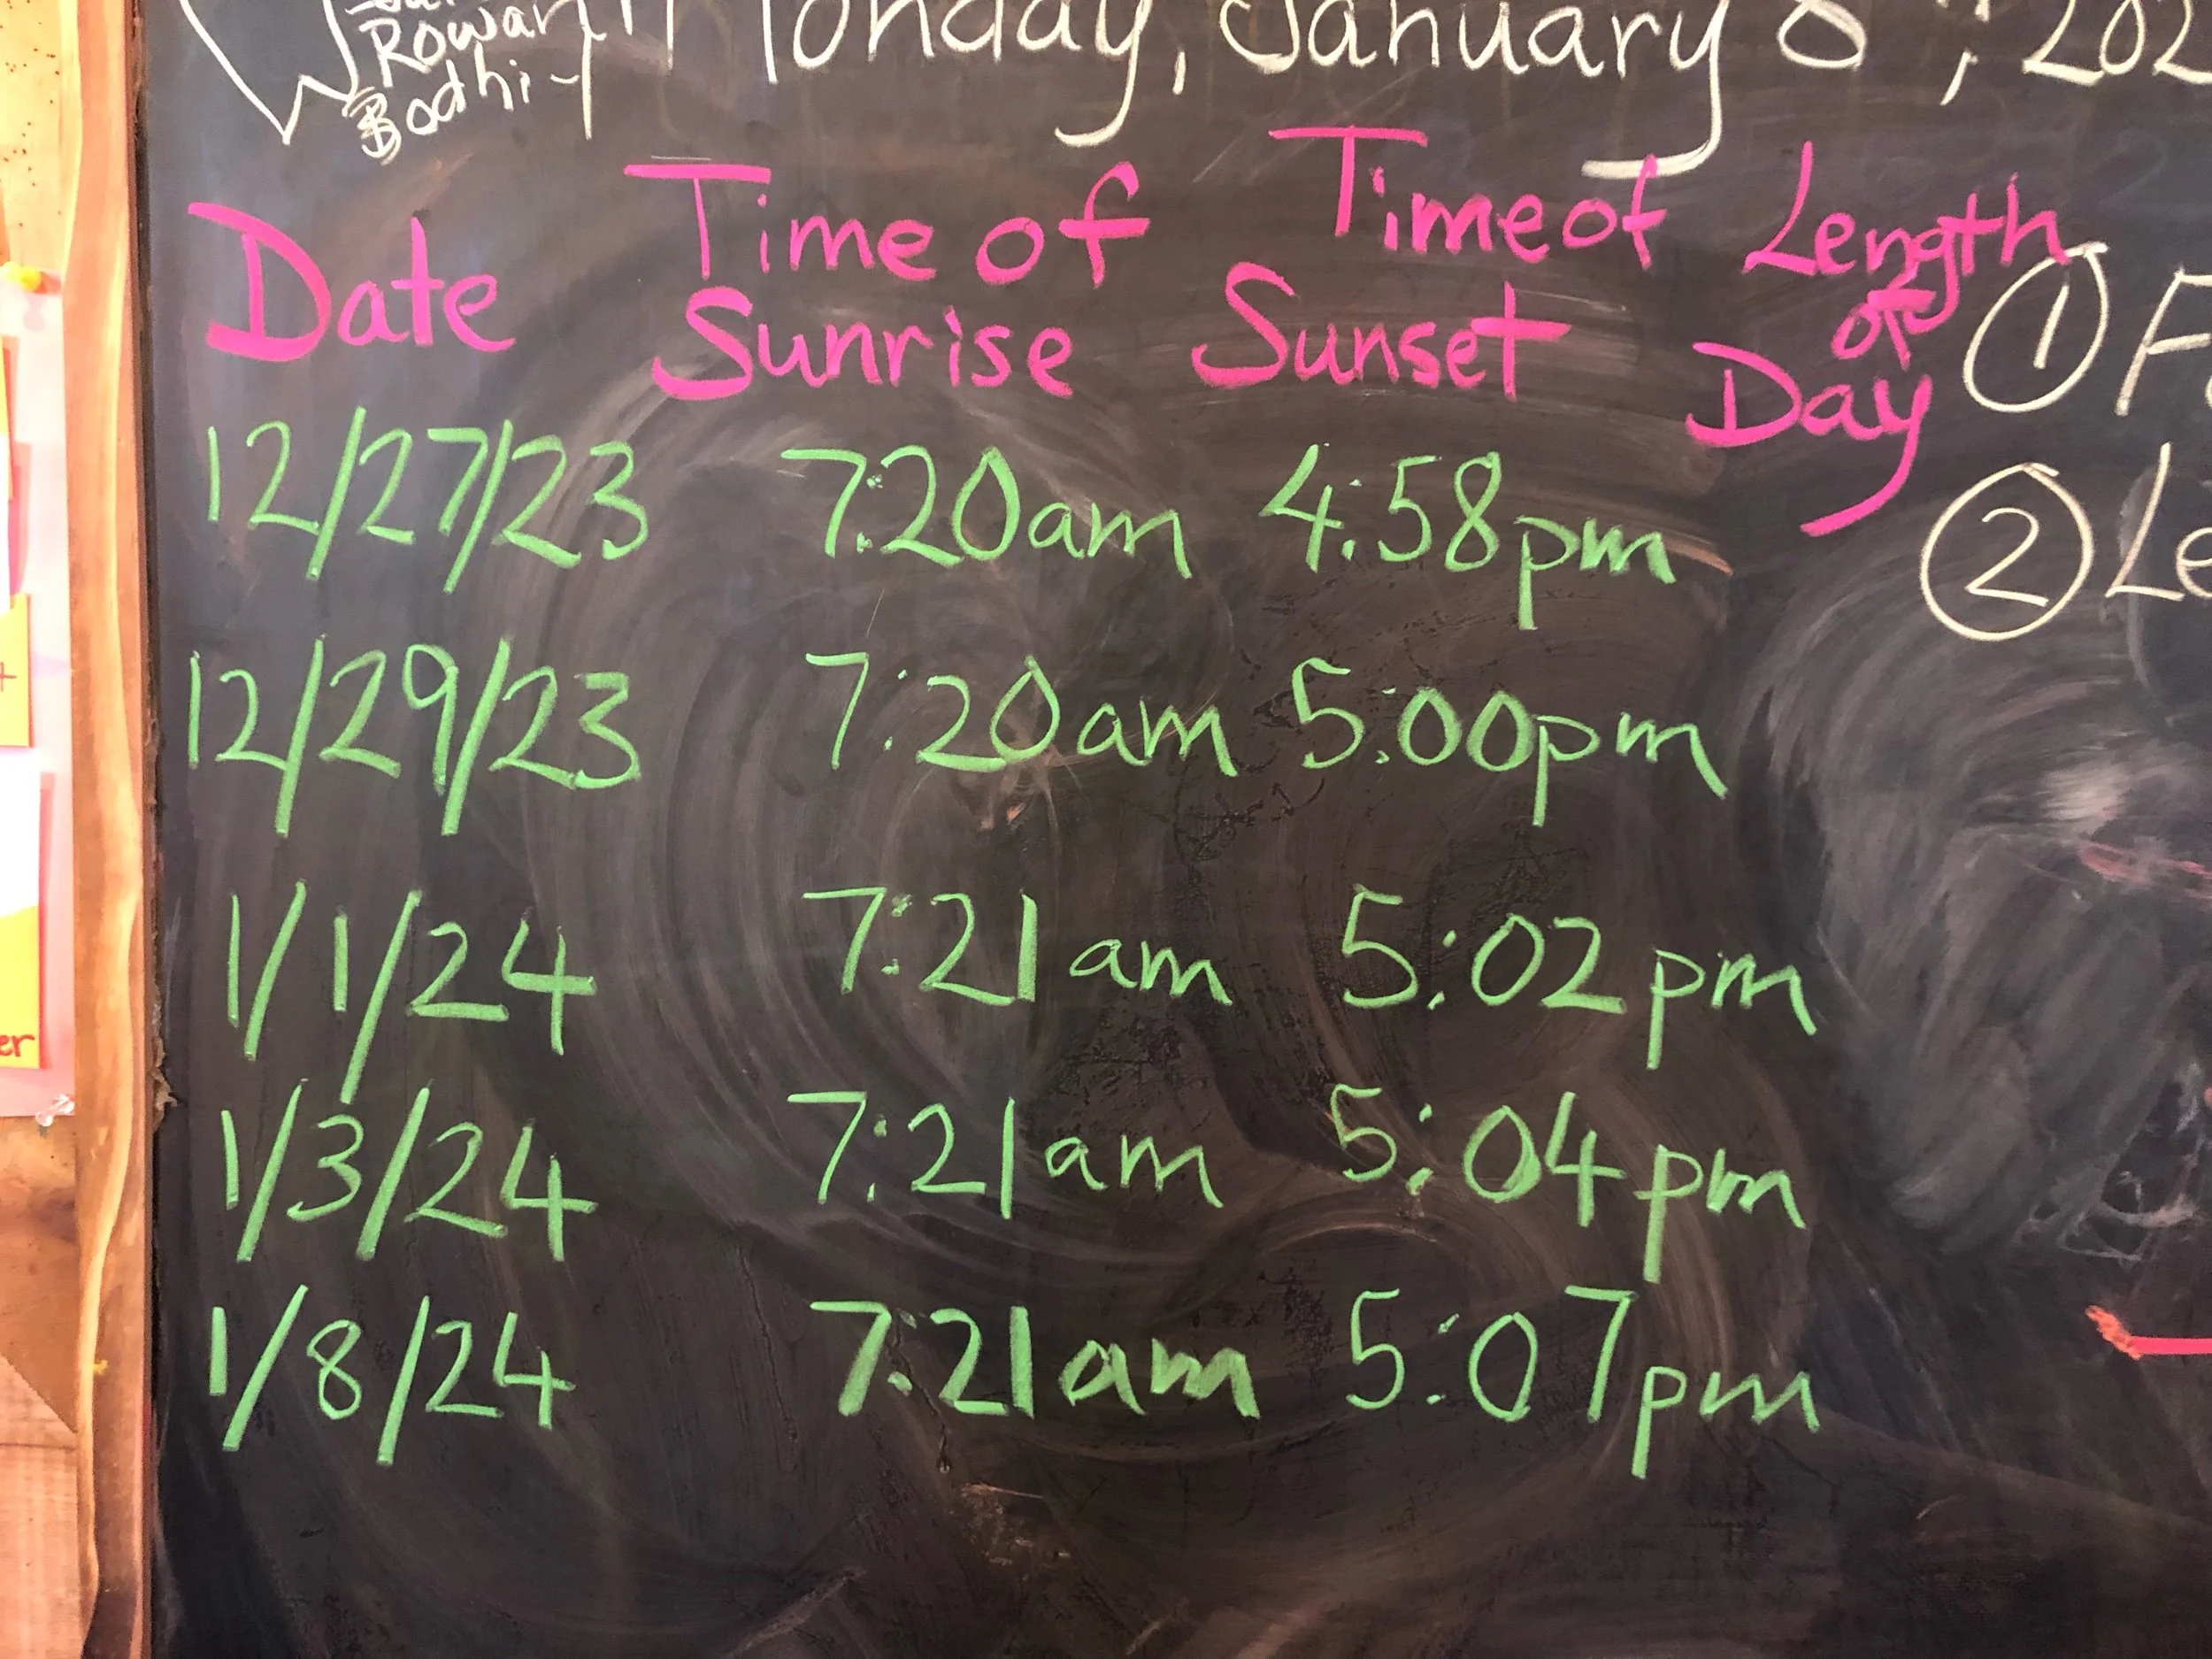 Rowan
Bodhi
Monday, January 8th, 202
Date Time of Sunrise Time of Sunset Length of Day
12/27/23 7:20am 4:58pm
12/29/23 7:20am 5:00pm
1/1/24 7:21am 5:02pm
1/3/24 7:21am 5:04pm
1/8/24 7:21am 5:07pm
① F
② Le
er